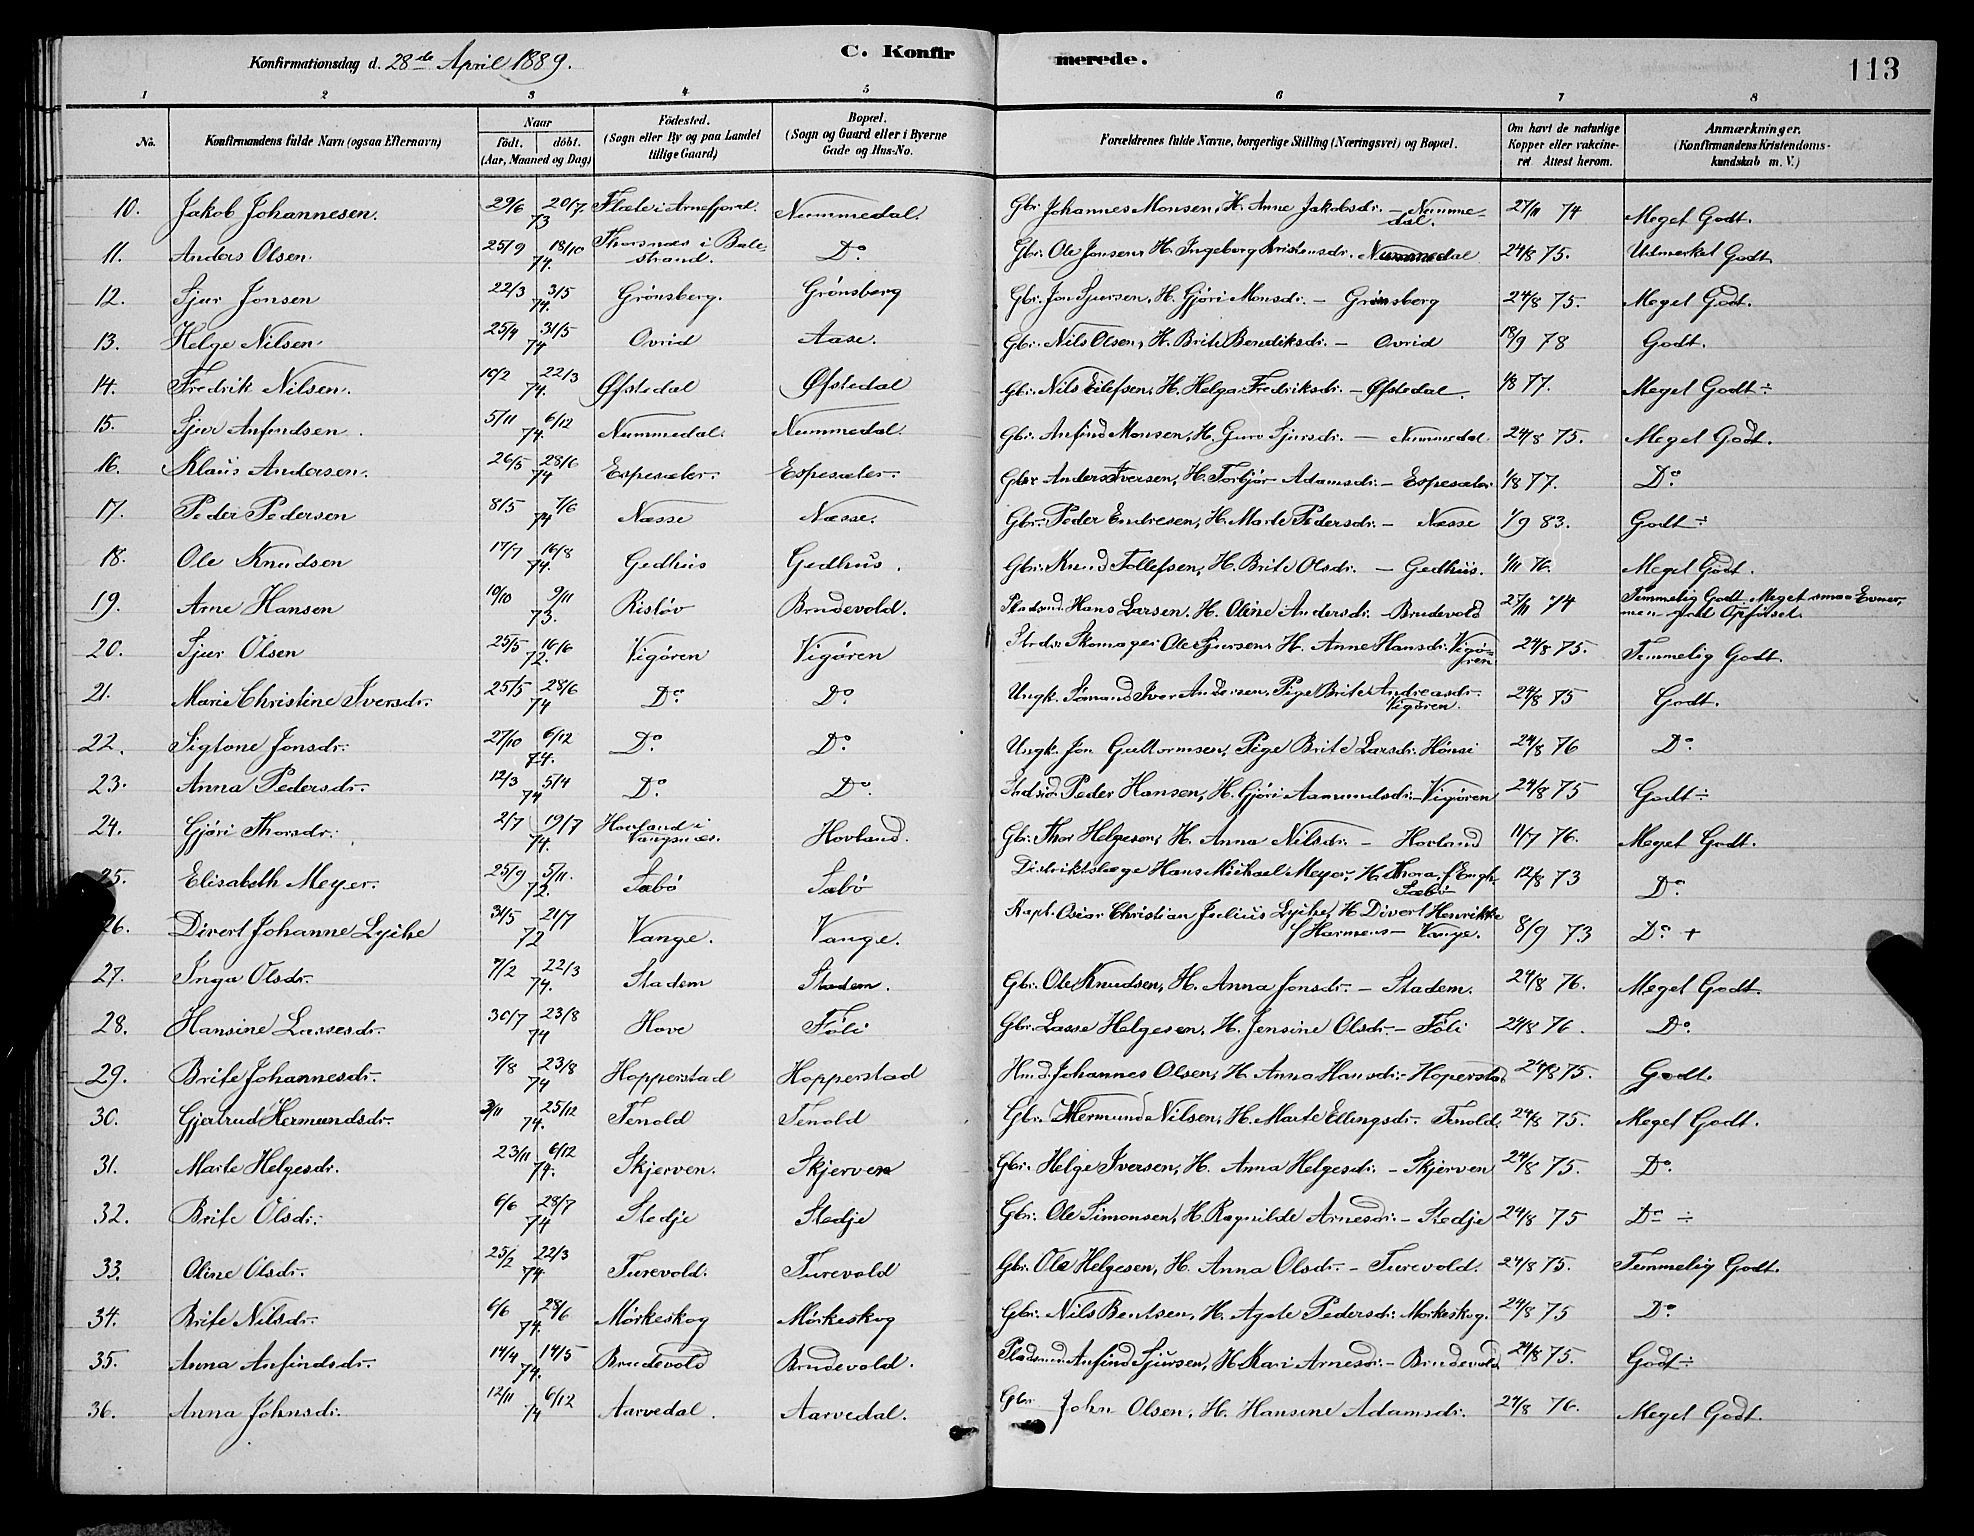 Konfirmationsdag d. 28de April 1889.
C. Konfirmerede.
113
1 2 3 4 5 6 7 8
No. Konfirmandens fulde Navn (ogsaa Efternavn) Naar født. døbt. (Aar, Maaned og Dag) Födested. (Sogn eller By og paa Landet tillige Gaard) Bopæl. (Sogn og Gaard eller i Byerne Gade og Hus-No. Forældrenes fulde Navne, borgerlige Stilling (Næringsvei) og Bopæl. Om havt de naturlige Kopper eller vakcineret Attest herom. Anmærkninger. (Konfirmandens Kristendomskundskab m. V.)
10. Jakob Johannesen. 29/6 20/7 73 Flæte i Arnefjord. Nummedal. Gbr. Johannes Monsen, H. Anne Jakobsdr. - Nummedal. 27/11 74 Meget Godt.
11. Anders Olsen 25/9 18/10 74. Thorsnæs i Balestrand. Do. Gbr. Ole Jonsen, H. Ingeborg Kristensdr. Nummedal 24/8 75. Udmerket Godt.
12. Sjur Jonsen 22/3 3/5 74. Grönsberg. Grönsberg Gbr. Jon Sjursen, H. Gjöri Monsdr. - Grönsberg 24/8 75. Meget Godt.
13. Helge Nilsen 25/4 31/5 74 Ovrid Aase. Gbr. Nils Olsen, H. Brite Bendiksdr. - Ovrid 18/9 78 Godt.
14. Fredrik Nilsen. 10/2 22/3 74. Øfstedal Øfstedal Gbr. Nils Eilefsen, H. Helga Fredriksdr. - Øfstedal. 1/8 77. Meget Godt ÷
15. Sjur Anfindsen. 5/11 6/12 74. Nummedal. Nummedal. Gbr. Anfind Monsen, H. Guro Sjursdr. - Nummedal. 24/8 75. Meget Godt.
16. Klaus Andersen. 26/5 28/6 74 Espesæter. Espesæter. Gbr Anders Iversen, H. Torbjör Adamsdr. - Espesæter 1/8 77. Do.
17. Peder Pedersen 8/5 7/6 74 Næsse Næsse. Gbr. Peder Endresen, H. Marte Pedersdr. - Næsse 1/9 83. Godt ÷
18. Ole Knudsen 17/7 16/8 74. Gedhus Gedhus. Gbr. Knud Tollefsen, H. Brite Olsdr. - Gedhus. 1/11 76. Meget Godt.
19. Arne Hansen 10/10 9/11 73. Ristöv Brudevold. Pladsmd. Hans Larsen. H. Oline Andersdr. - Brudevold 27/11 74 Temmelig Godt. Meget smaa Evner, men god Opförsel.
20. Sjur Olsen 25/5 16/6 72. Vigören Vigören Skomager Ole Sjursen, H. Anne Hansdr. Vigören 24/8 75. Temmelig Godt.
21. Marie Christine Iversdr. 25/5 28/6 74 Do Do Ungk. Sömand Iver Andersen, Pige Brite Andreasdr. Vigören. 24/8 75 Godt.
22. Sigtone Jonsdr. 27/10 6/12 74. Do. Do. Ungk. Jon Guttormsen, Pige Brite Larsdr. Hönsi 24/8 76 Do.
23. Anna Pedersdr. 12/3 5/4 74 Do. Do. Peder Hansen, H. Gjöri Aamundsdr. - Vigören 24/8 75 Godt ÷
24. Gjöri Thorsdr. 2/7 19/7 74. Hovland i Vangsnæs. Hovland. Gbr. Thor Helgesen, H. Anna Nilsdr. - Hovland 11/7 76. Meget Godt.
25. Elisabeth Meyer. 25/9 5/11. 72. Sæbö Sæbö Distriktslæge Hans Mikael Meyer, H. Thora f. Engh. Sæbö 12/8 73 Do.
26. Divert Johanne Lyche 31/5 21/7 72 Vange. Vange. Kapt. Oscar Christian Julius Lyche, H Divert Henrikke f Harmens - Vange. 8/9 73 Do. +
27. Inga Olsdr. 7/2 22/3 74. Stadem Stadem. Gbr. Ole Knudsen, H. Anna Jonsdr. - Stadem. 24/8 76. Meget Godt.
28. Hansine Lassesdr. 30/7 23/8 74 Hove Föli Gbr. Lasse Helgesen, H. Jensine Olsdr. - Föli 24/8 76. Do.
29. Brite Johannesdr. 7/8 23/8 74 Hopperstad Hopperstad Hmd. Johannes Olsen, H. Anna Hansdr. - Hoperstad 24/8 75. Godt.
30. Gjertrud Hermundsdr. 3/11 25/12 74. Tenold Tenold Gbr. Hermund Nilsen, H. Marte Ellingsdr. Tenold. 24/8 75. Meget Godt.
31. Marte Helgesdr. 23/11 6/12 74. Skjerven. Skjerven Gbr. Helge Iversen, H. Anna Helgesdr. - Skjerven 24/8 75. Do.
32. Brite Olsdr. 6/6 28/7 74 Stedje Stedje Gbr. Ole Simonsen, H. Ragnilde Arnesdr. - Stedje 24/8 75 Do ÷
33. Oline Olsdr. 25/2 22/3 74. Turevold. Turevold Gbr. Ole Helgesen, H. Anna Olsdr. - Turevold. 24/8 75. Temmelig Godt.
34. Brite Nilsdr. 6/6 28/6 74. Mörkeskog Mörkeskog Gbr. Nils Bentsen, H. Agate Pedersdr. Mörkeskog. 24/8 75 Do
35. Anna Anfindsdr. 14/4 14/5 74. Brudevold Brudevold. Pladsmd. Anfind Sjursen, H. Kari Arnesdr. - Brudevold 24/8 75. Godt ÷
36. Anna Johnsdr. 12/11 6/12 74 Aarvedal. Aarvedal. Gbr John Olsen, H. Hansine Adamsdr. 24/8 76. Meget Godt.